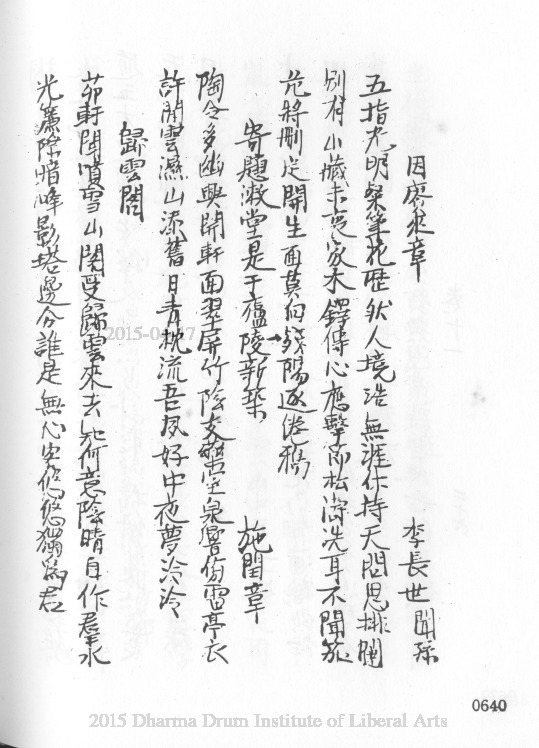 因廖來章 李長世 聞孫
五指光明粲筆花歷狀人境浩無涯作持天問思排闥
別有小藏未家木鐸傳心應擊節松濤洗耳不聞笳
將刪定開生面莫向陽逐倦鴉
寄題漱堂是于廬陵新築 施閏章
陶令多幽興開軒面翠屏竹陰交堂泉響傍雷亭衣
許閒雲濕山添舊日青枕流吾夙好中夜夢泠泠
歸雲閣
茆軒聞噴雪山閣受歸雲來去知何意陰晴自作羣水
光簾際暗峰影塔邊分誰是無心悠悠獨為君
2015-04-17
0640
2015 Dharma Drum Institute of Liberal Arts